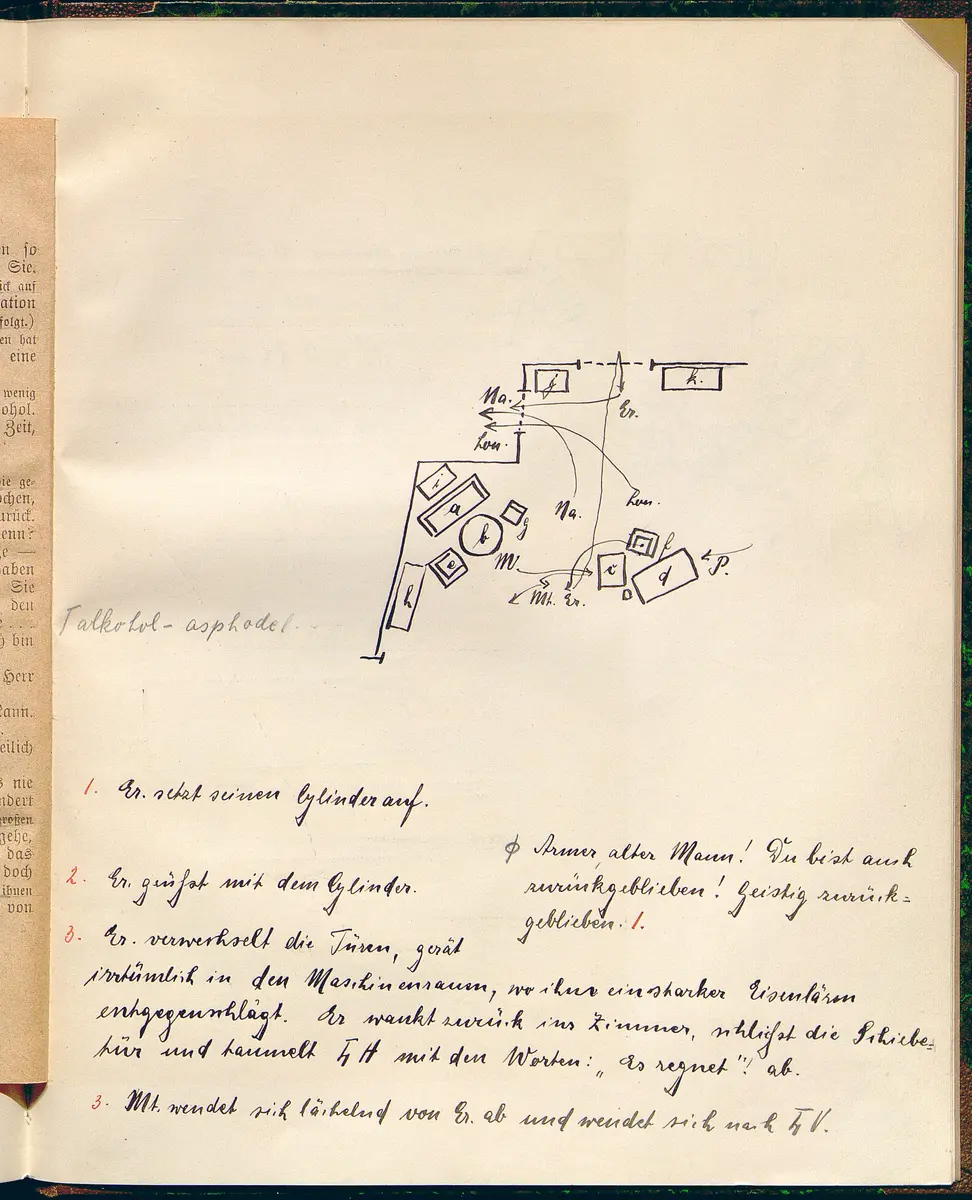 n so
Sie.
ick auf
ation
folgt.)
en hat
eine
wenig
ohol.
Zeit,
ie ge-
ochen,
urück.
enn?
e —
aben
Sie
den
. . .
h bin
Herr
kann.
eilich
s nie
ndert
großen
gehe,
das
doch
ihnen
von
j k.
Na. Er.
Lou.
i
a g Na. Lou.
b f
e M. c d P.
h Mt. Er.
Talkohol - asphodel. . .
1. Er. setzt seinen Cylinder auf.
φ Armer, alter Mann! Du bist auch
zurückgeblieben! Geistig zurück-
geblieben. 1.
2. Er. grüßt mit dem Cylinder.
3. Er. verwechselt die Türen, gerät
irrtümlich in den Maschinenraum, wo ihm ein starker Eisenlärm
entgegenschlägt. Er wankt zurück ins Zimmer, schließt die Schiebe-
tür und taumelt H mit den Worten: „Es regnet"! ab.
3. Mt. wendet sich lächelnd von Er. ab und wendet sich nach V.